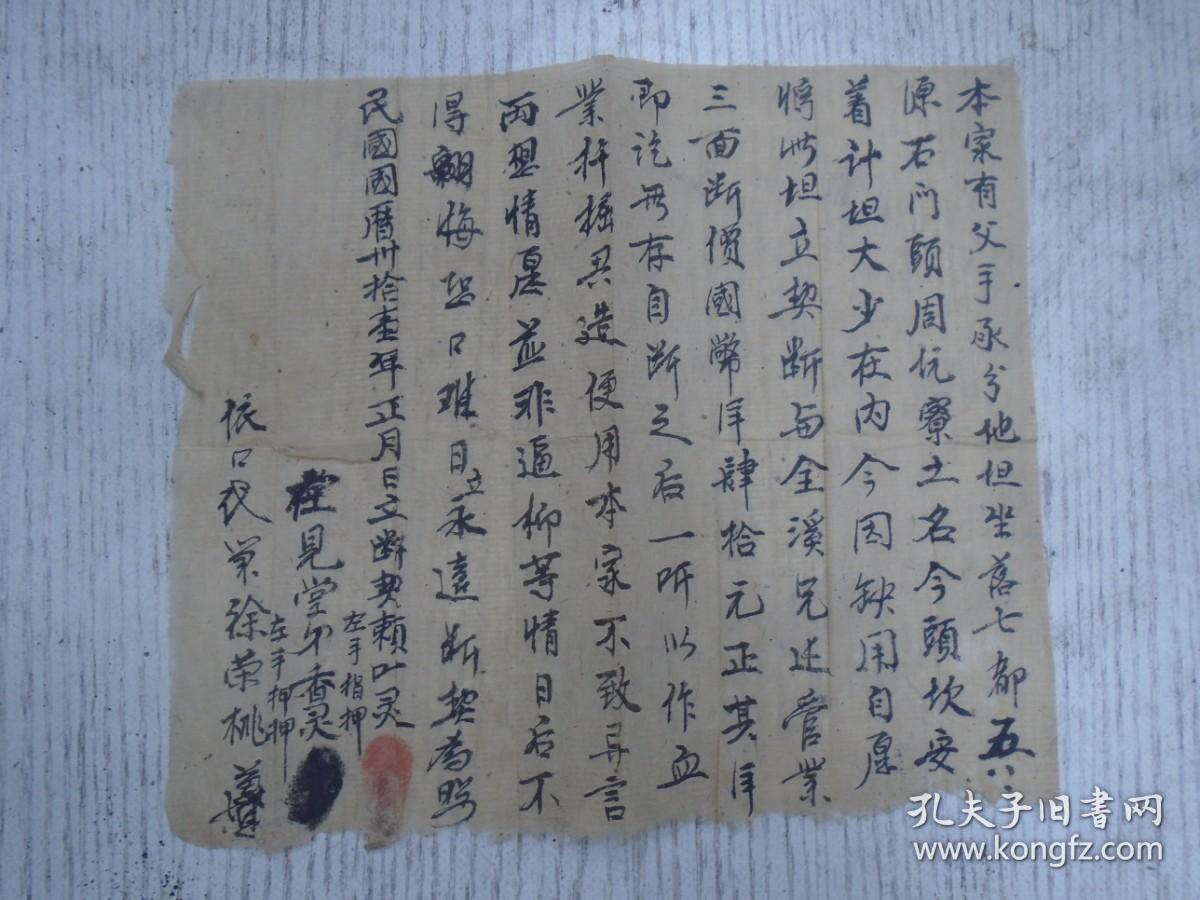 本家有父手承分地坦坐落七都五
源石门頭周坑寮土名今頭坎安
着計坦大少在内今因缺用自愿
將此坦立契断与全溪兄边管業
三面断價國幣洋肆拾元正其洋
即訖無存自断之后一听以作血
業扦掘異造便用本家不致异言
两想情愿並非逼抑等情日后不
得翻悔恐口难日立永遠断契為照
民國國曆卅拾壹年正月日立断契賴叶灵
左手指押
在見堂弟香灵
左手押押
依口代笔徐荣桃
孔夫子旧书网
www.kongfz.com